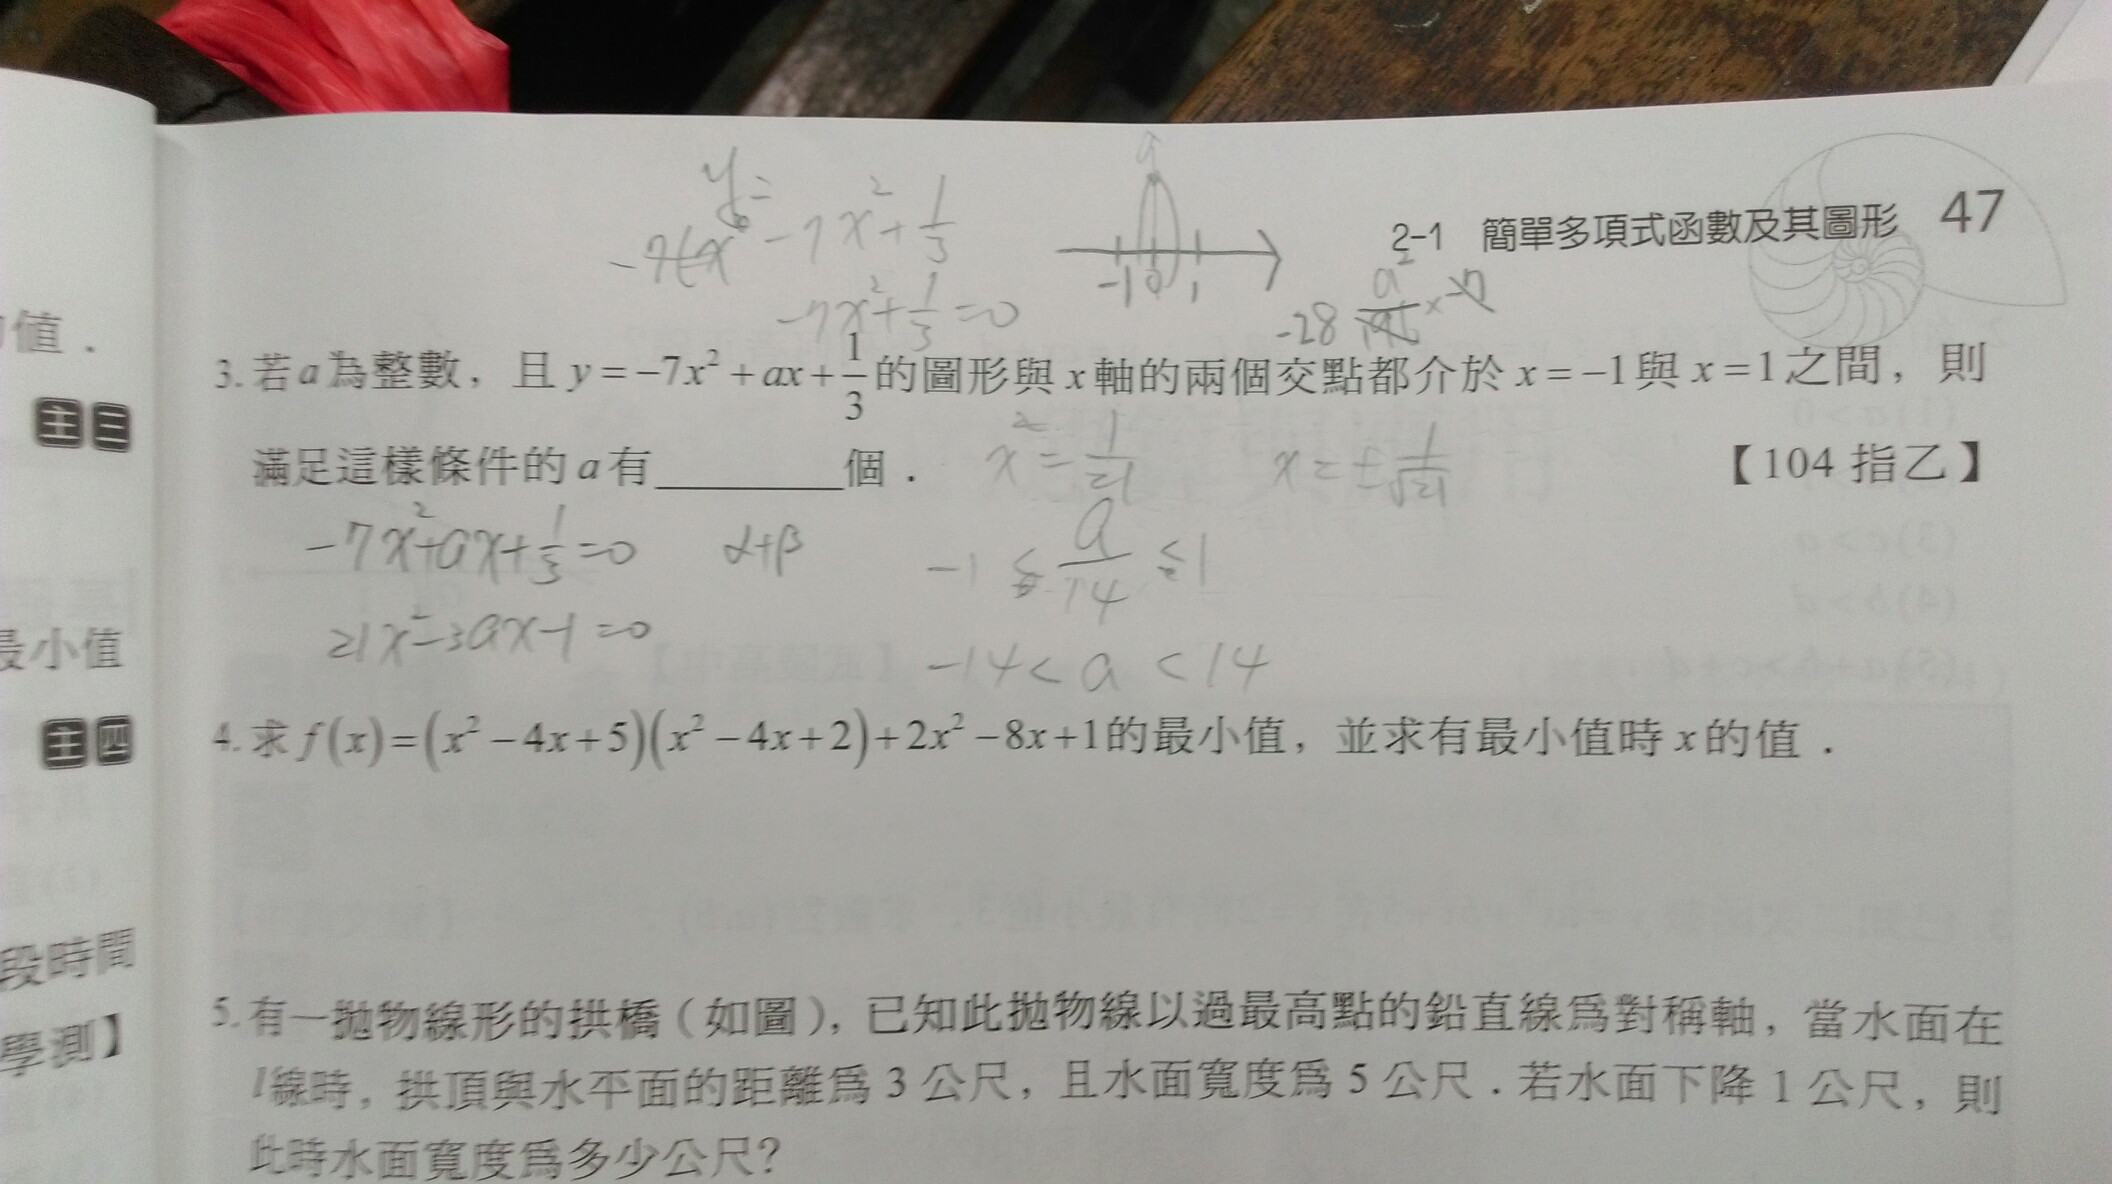 y=
-7x²+1/3
-7x²+1/3=0
-1 0 1
2-1 簡單多項式函數及其圖形 47
a²
-28
值．
3. 若a為整數，且y=-7x²+ax+1/3的圖形與x軸的兩個交點都介於x=-1與x=1之間，則
主三
滿足這樣條件的a有________個．【104 指乙】
x²=1/21 x=±1/√21
-7x²+ax+1/3=0 α+β -1≤a/14≤1
21x²-3ax-1=0
-14<a<14
最小值
主四
4. 求f(x)=(x²-4x+5)(x²-4x+2)+2x²-8x+1的最小值，並求有最小值時x的值．
段時間
學測】
5. 有一拋物線形的拱橋（如圖），已知此拋物線以過最高點的鉛直線為對稱軸，當水面在
l線時，拱頂與水平面的距離為3公尺，且水面寬度為5公尺．若水面下降1公尺，則
此時水面寬度為多少公尺？